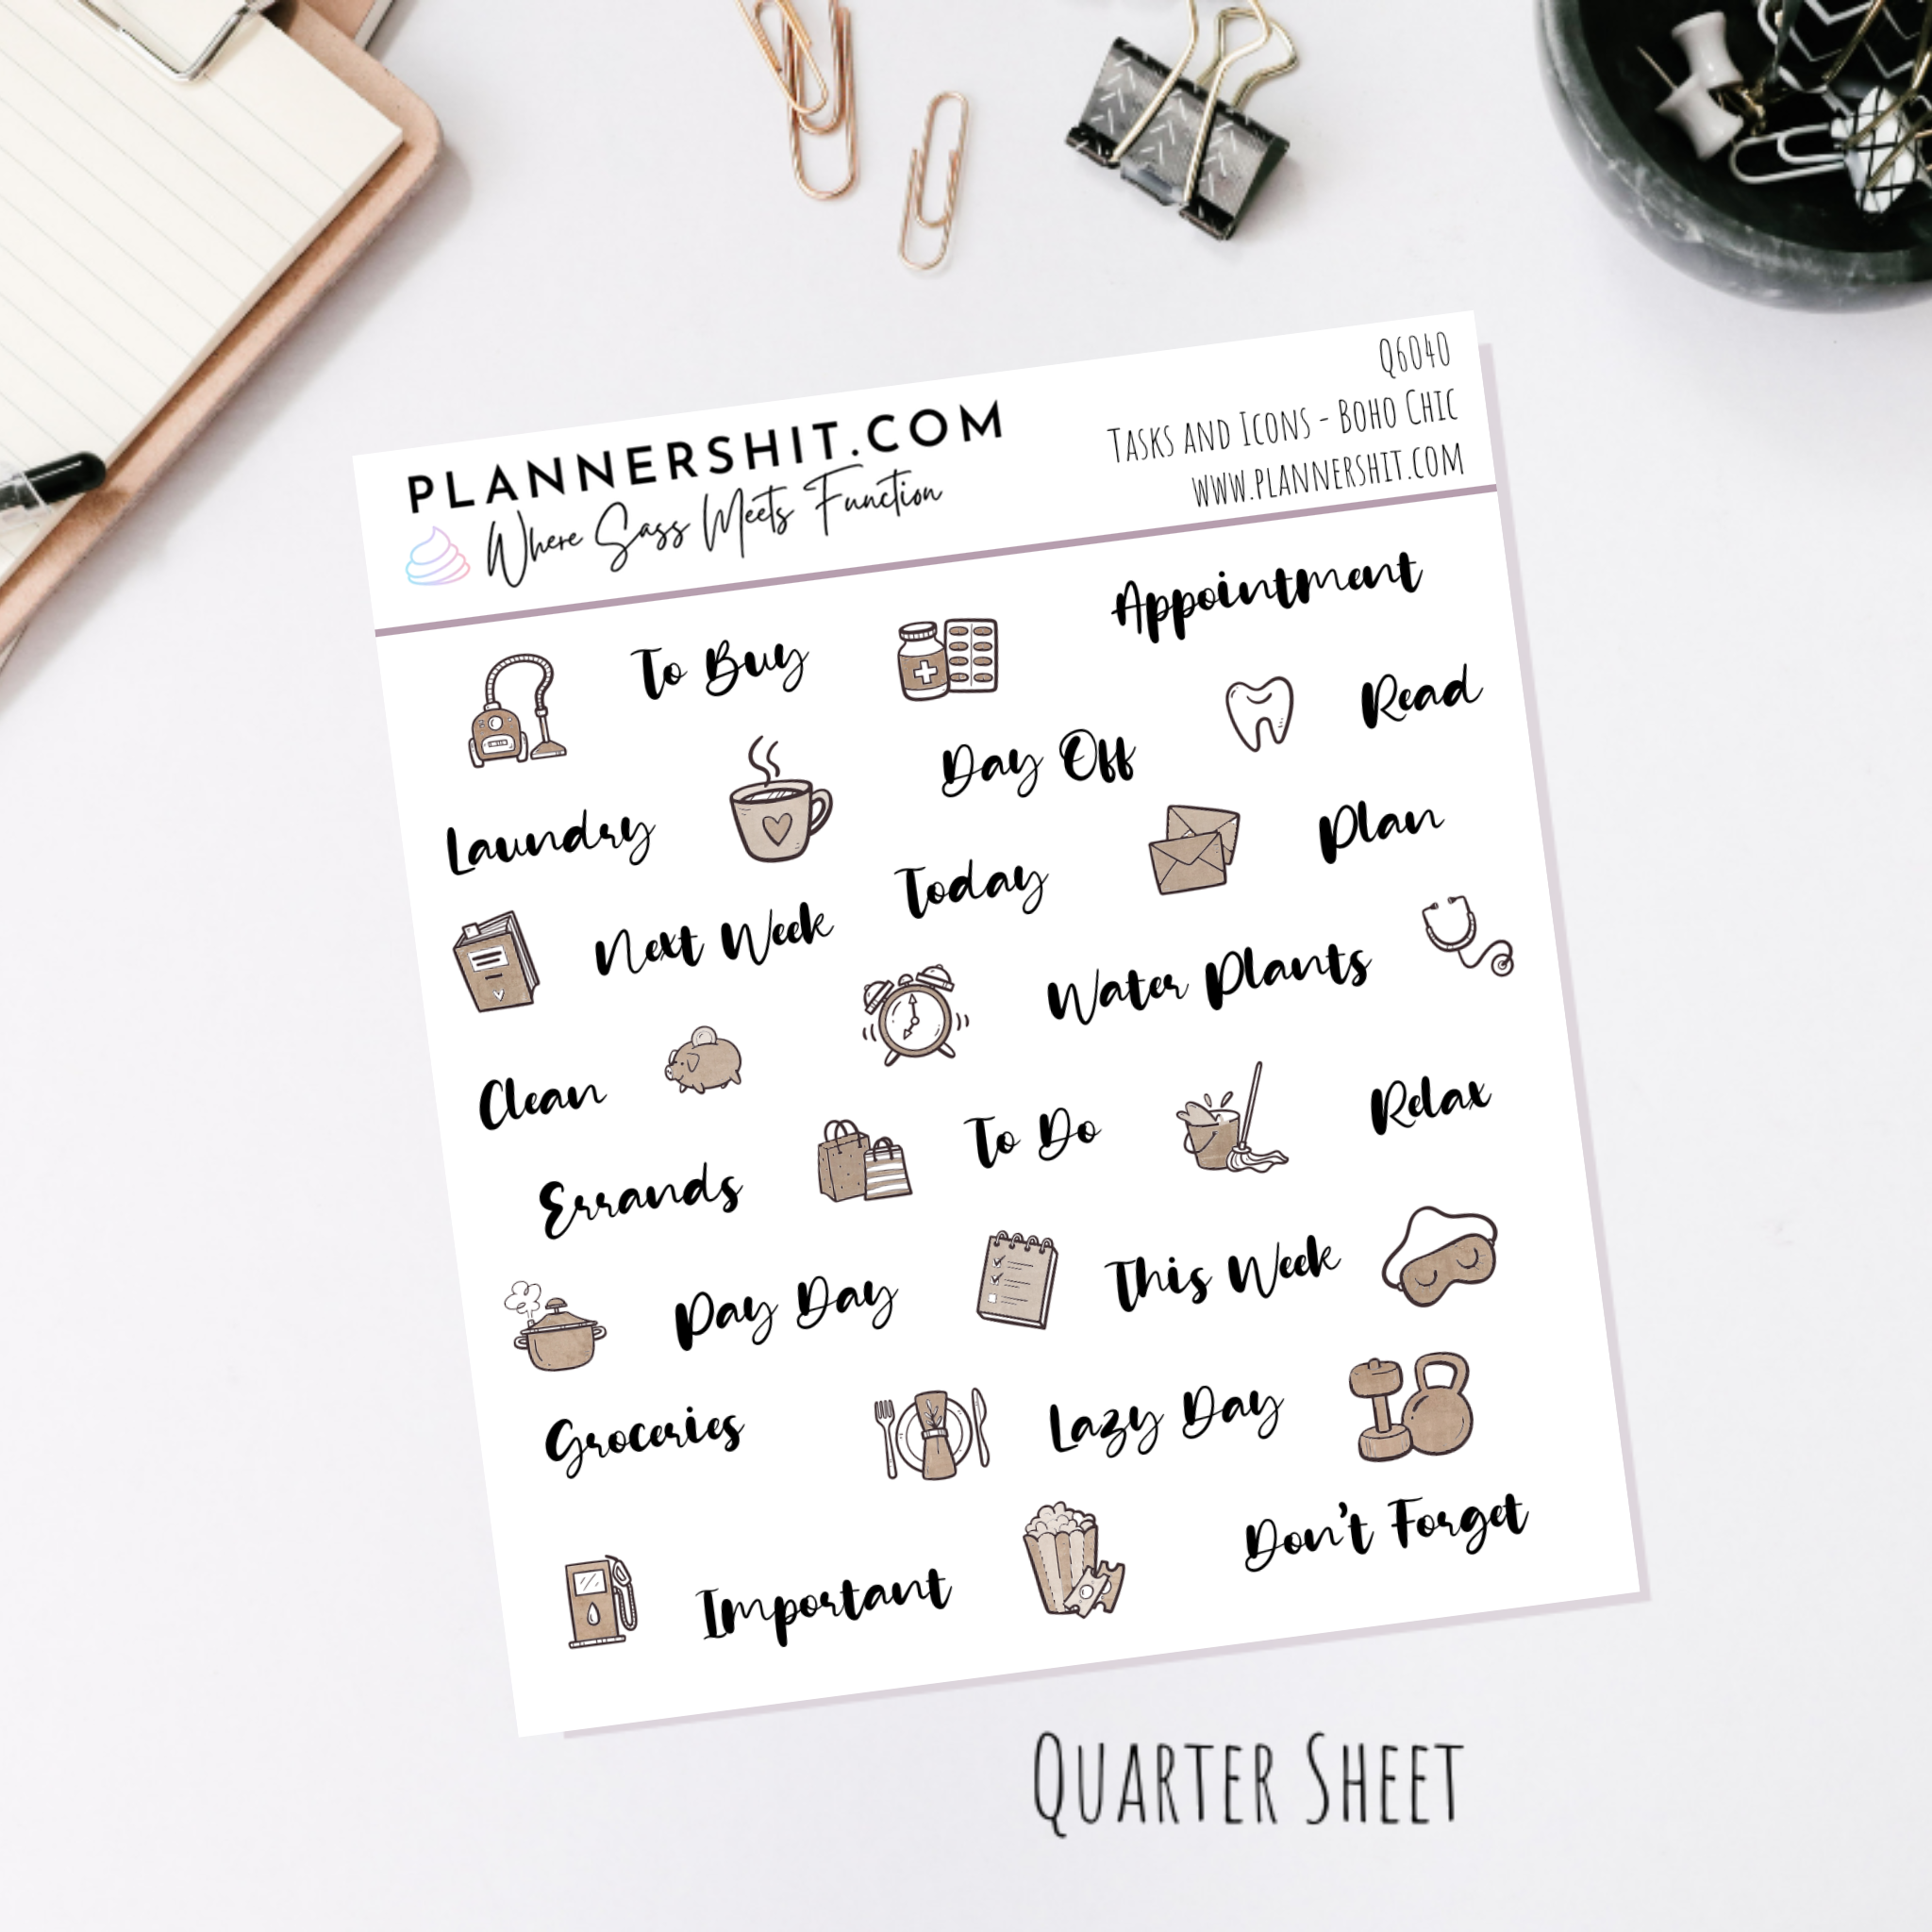 PLANNERSHIT.COM
Where Sass Meets Function
Q6040
Tasks and Icons - Boho Chic
www.plannershit.com
To Buy
Appointment
Read
Day Off
Laundry
Plan
Today
Next Week
Water Plants
Clean
Relax
To Do
Errands
This Week
Pay Day
Lazy Day
Groceries
Don't Forget
Important
Quarter Sheet